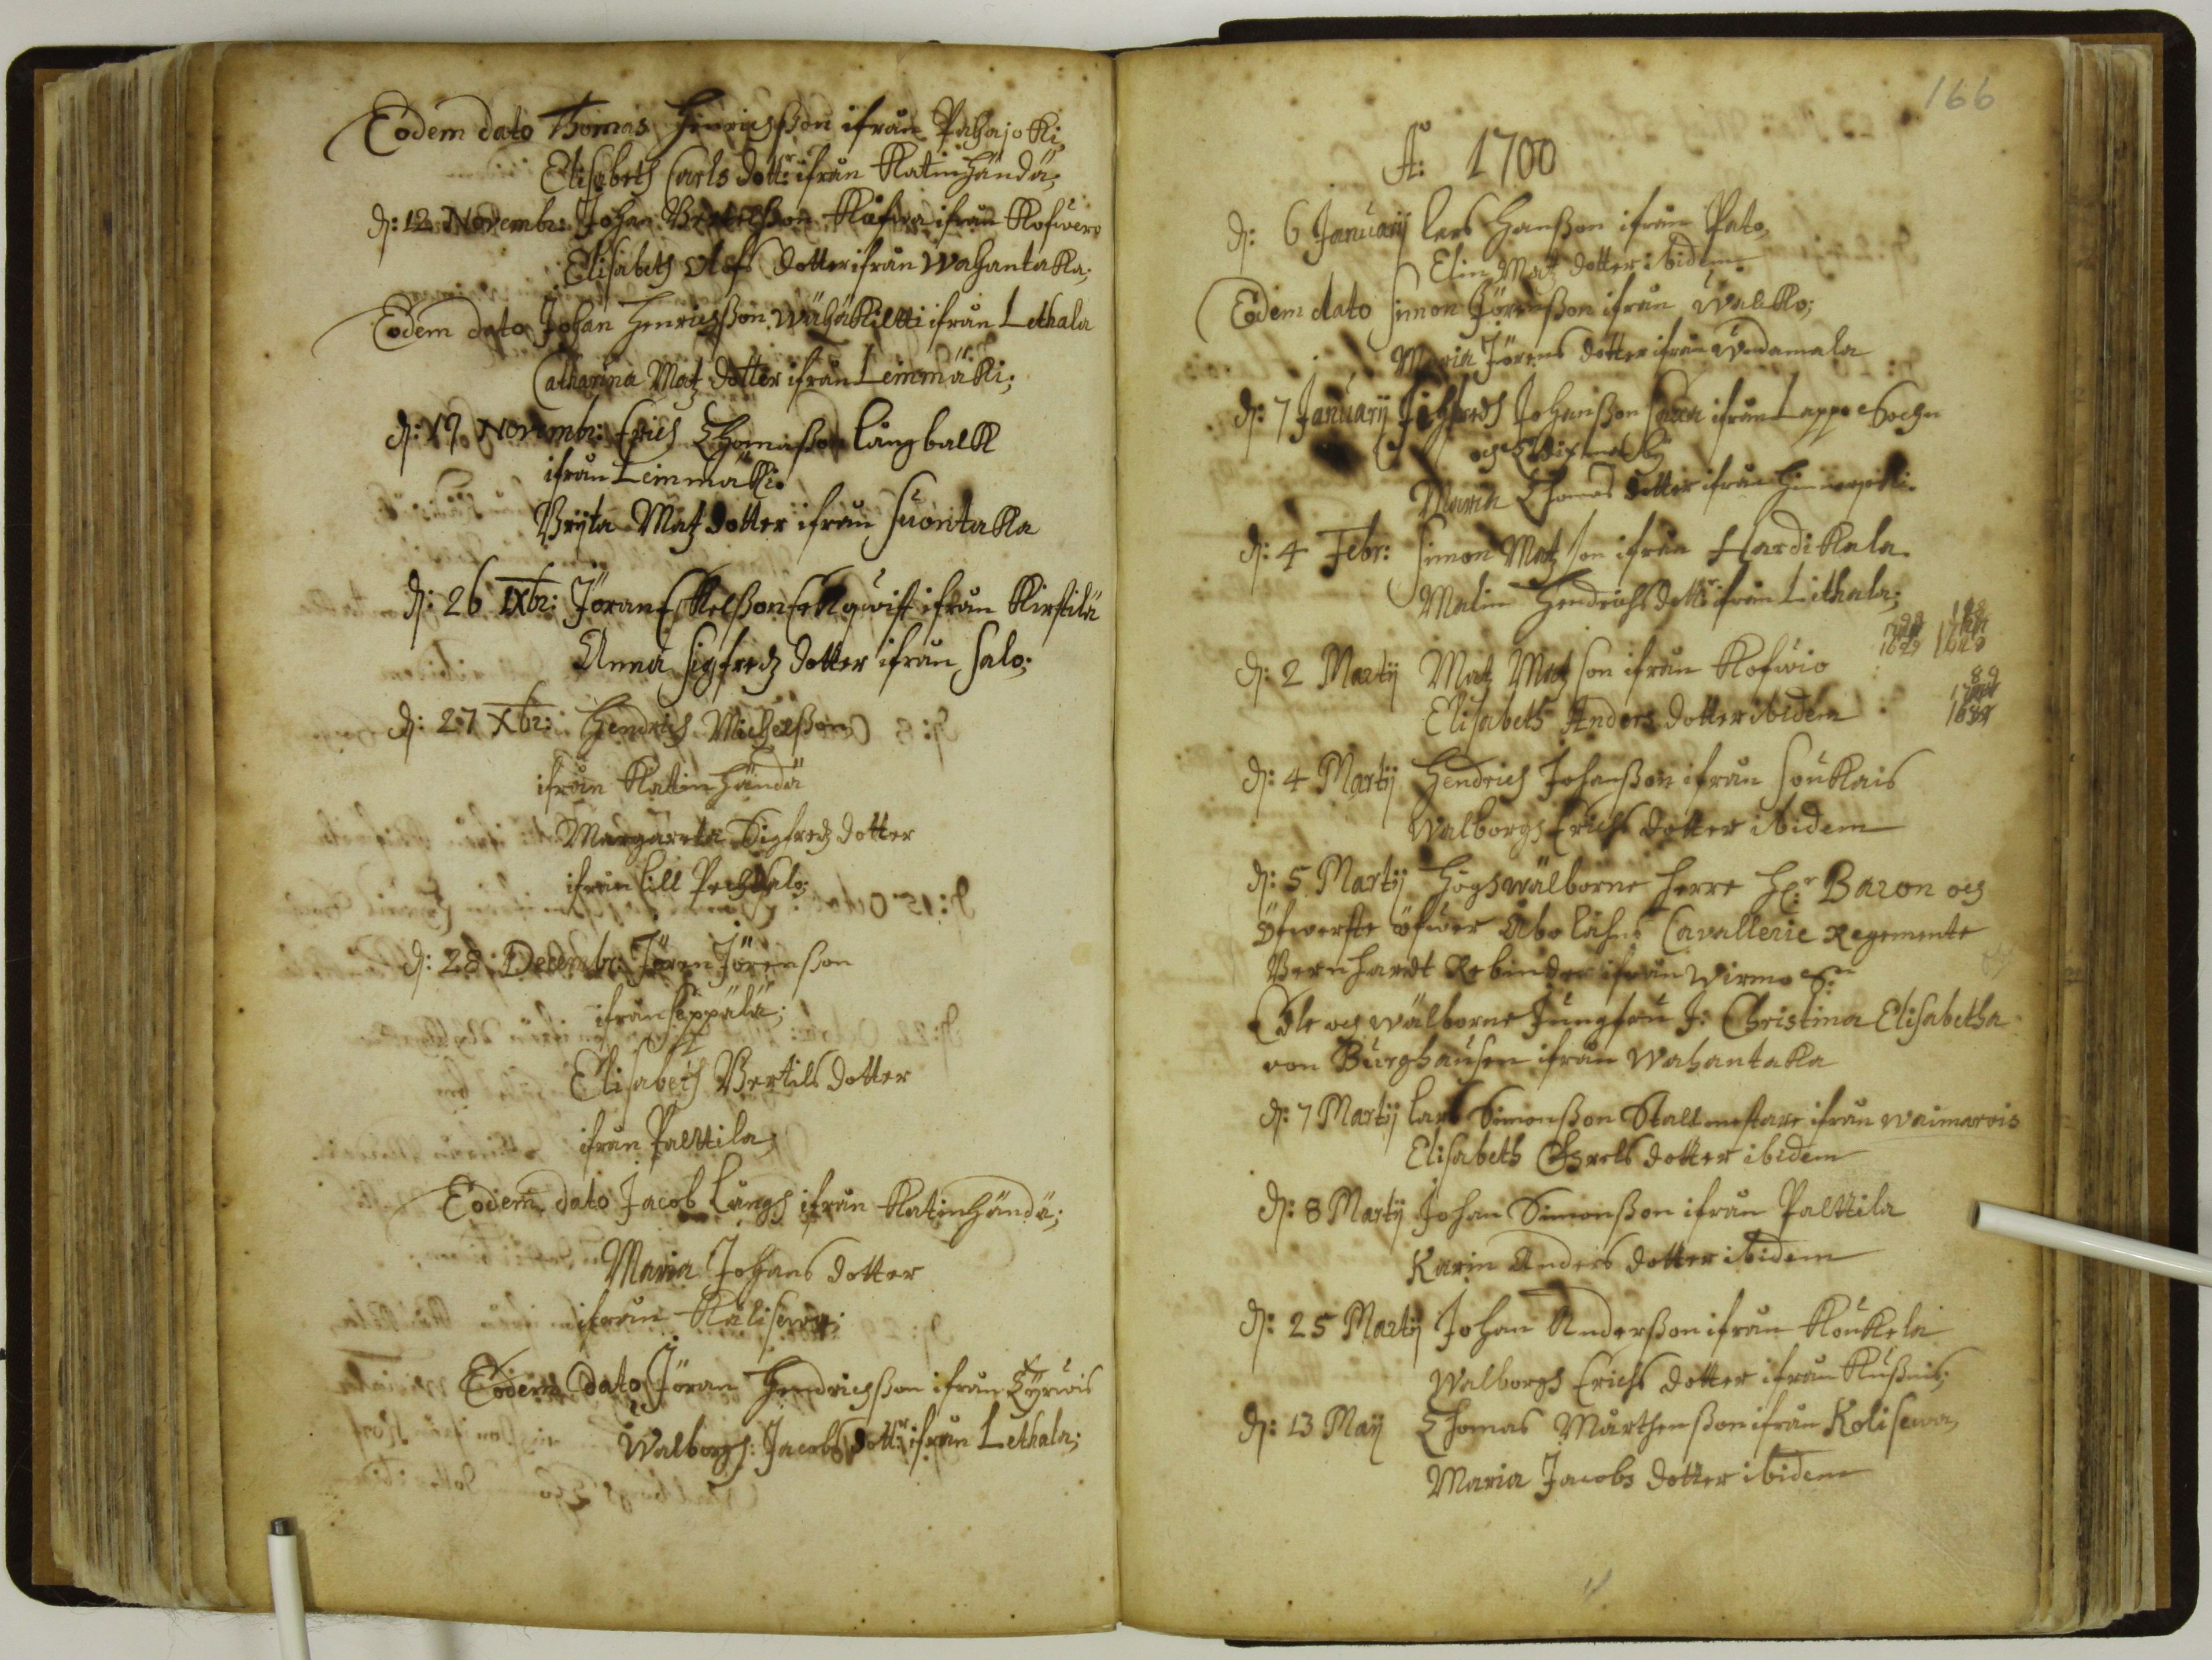 Eodem dato Thomas Hinrichsson ifrån Pahajoki
Elisabeth Carls dott:r ifrån Katinhändä;
d: 12 Novembr: Johan Bertilsson ifrån Kofwero
Elisabeth Olofs dotter ifrån Wahantaka;
Eodem dato Johan Henrichsson Wähäkiltti ifrån Lethala
Catharina Matz dotter ifrån Lemmäki;
d: 19 Novembr: Erich Thomasson Långbalk
ifrån Lemmäki
Bryta Matz dotter ifrån Suontaka
d: 26 IXbr: Jöran Eskelsson ifrån Kirstilä
Anna Sigfredz dotter ifrån Salo;
d: 27 Xbr: Hendrich Michelsson
ifrån Katinhändä
Margareta Sigfredz dotter
ifrån lill
d: 28 Decembr: Jören Jörensson
ifrån Seppälä;
Elisabeth Bertils dotter
ifrån Palttila;
Eodem dato Jacob Långh ifrån Katinhändä;
Maria Johans dotter
ifrån Kalisewa;
Eodem dato Jöran Hendrichsson ifrån
Walborgh Jacobs dott:r ifrån Lethala;
166
A: 1700
d: 6 Januarij Lars Hansson ifrån Pato,
Elin Matz dotter ibidem
Eodem dato Simon Jörensson ifrån Walkko;
Maria Jörens dotter ifrån
d: 7 Januarij Johansson ifrån Lappo Sochn
och by
Maria Thomas dotter ifrån
d: 4 Febr: Simon Matz son ifrån Hardikkala
Malin Hendrichs dott:r ifrån Lethala;
d: 2 Martij Matz Matz son ifrån Kofwio
Elisabeth Anders dotter ibidem
d: 4 Martij Hendrich Johansson ifrån Soukais
Walborgh Erichs dotter ibidem
d: 5 Martij Höghwälborne Herre H:r Baron och
Öfwerste öfwer Åbo lähns Cavallerie Regemente
Bernhardt Rebinder ifrån Wirmo S:n
Ädle och wälborne Jungfru J: Christina Elisabetha
von Burghausen ifrån Wahantaka
d: 7 Martij Lars Simonsson Stallmestare ifrån Waimarois
Elisabeth dotter ibidem
d: 8 Martij Johan Simonsson ifrån Palttila
Karin Anders dotter ibidem
d: 25 Martij Johan Andersson ifrån Koukela
Walborgh Erichs dotter ifrån
d: 13 Maij Thomas Mårthensson ifrån Kolisewa,
Maria Jacobs dotter ibidem